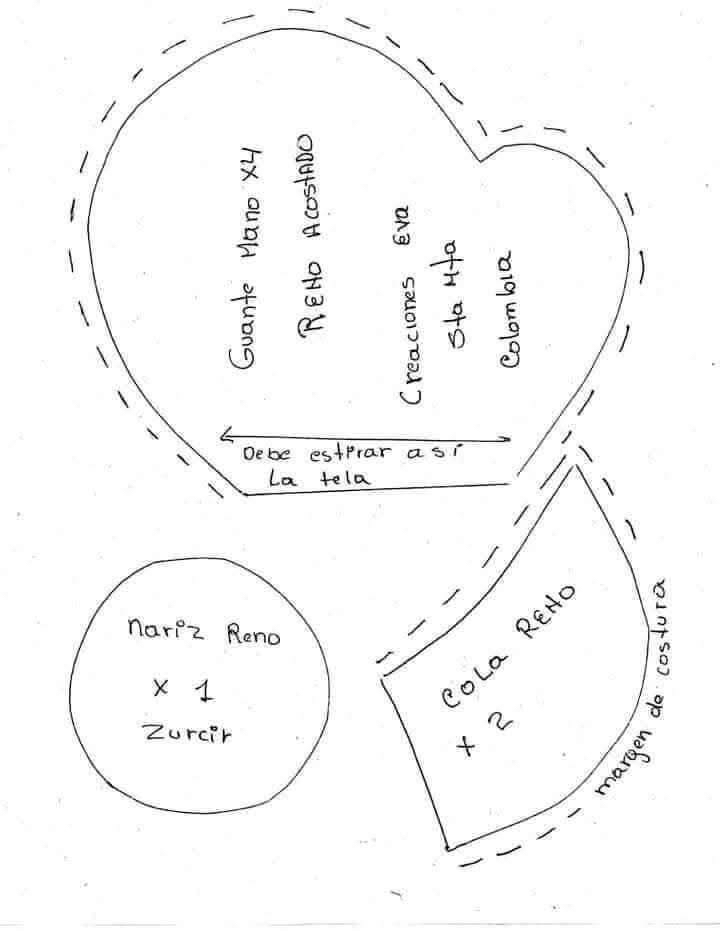 Guante Mano x4
RENO AcostADO
Creaciones Eva
Sta Mta
Colombia
Debe estirar así
La tela
Nariz Reno
x 1
Zurcir
COLA RENO
x 2
margen de costura